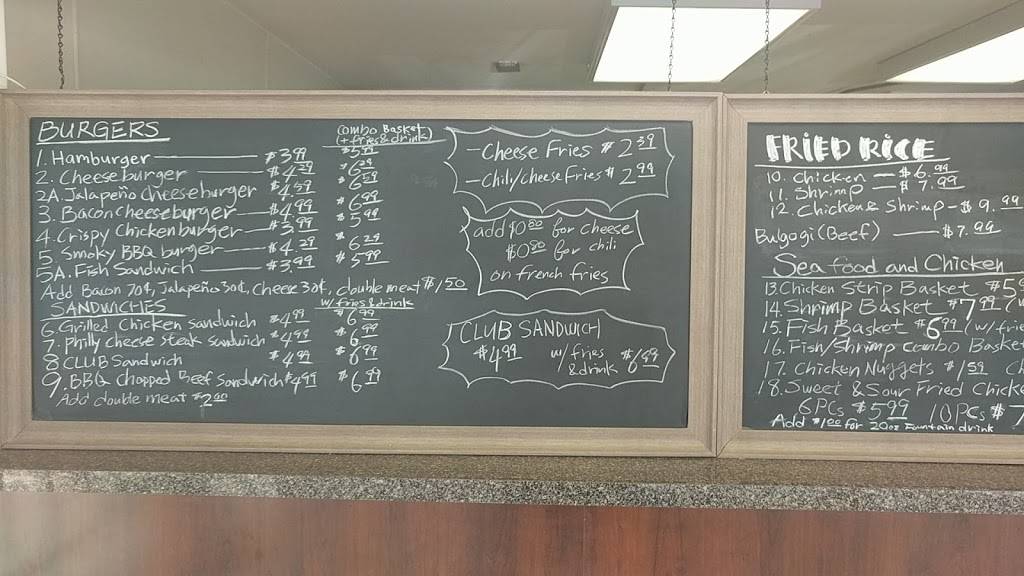 BURGERS
Combo Basket
(+fries & drink)
1. Hamburger $3.99 $5.99
2. Cheeseburger $4.39 $6.39
2A. Jalapeño cheeseburger $4.59 $6.59
3. Bacon Cheeseburger $4.99 $6.99
4. Crispy Chickenburger $3.99 $5.99
5. Smoky BBQ burger $4.39 $6.39
5A. Fish Sandwich $3.99 $5.99
Add Bacon 70¢, Jalapeño 30¢, Cheese 30¢, double meat $1.50
SANDWICHES w/fries & drink
6. Grilled Chicken sandwich $4.99 $6.99
7. Philly cheese steak sandwich $4.99 $6.99
8 CLUB Sandwich $4.99 $6.99
9. BBQ Chopped Beef Sandwich $4.99 $6.99
Add double meat $2.00
- Cheese Fries $2.39
- Chili/cheese Fries $2.99
add $0.00 for cheese
for chili
on french fries
CLUB SANDWICH
$4.99 w/ fries & drink $6.99
FRIED RICE
10. Chicken — $6.99
11. Shrimp — $7.99
12. Chicken & Shrimp - $9.99
Bulgogi (Beef) — $7.99
Seafood and Chicken
13. Chicken Strip Basket $5
14. Shrimp Basket $7.99
15. Fish Basket $6.99 (w/frie
16. Fish/Shrimp combo Basket
17. Chicken Nuggets $1.59
18. Sweet & Sour Fried Chicke
6 PCs $5.99 10 PCs $7
Add $1.00 for 20oz Fountain drink